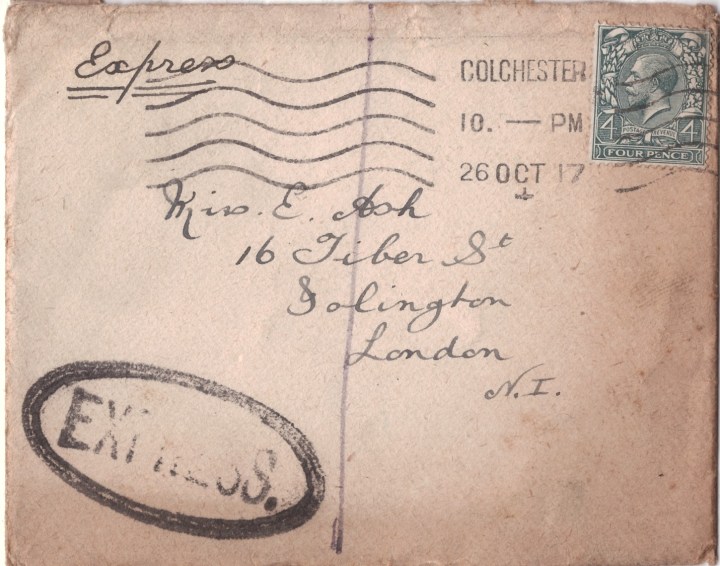 Express
COLCHESTER
10. — PM
26 OCT 17
4 POSTAGE REVENUE 4
FOUR PENCE
Miss. E. Ash
16 Tiber St
Islington
London
N.I.
EXPRESS.